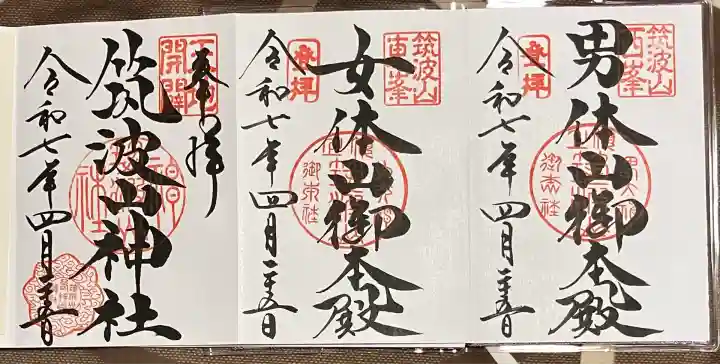 筑波山
西峯
登拝
男体山御本殿
令和七年四月二十五日
筑波山
東峯
登拝
女体山御本殿
令和七年四月二十五日
天地
開闢
奉拝
筑波山神社
令和七年四月二十五日